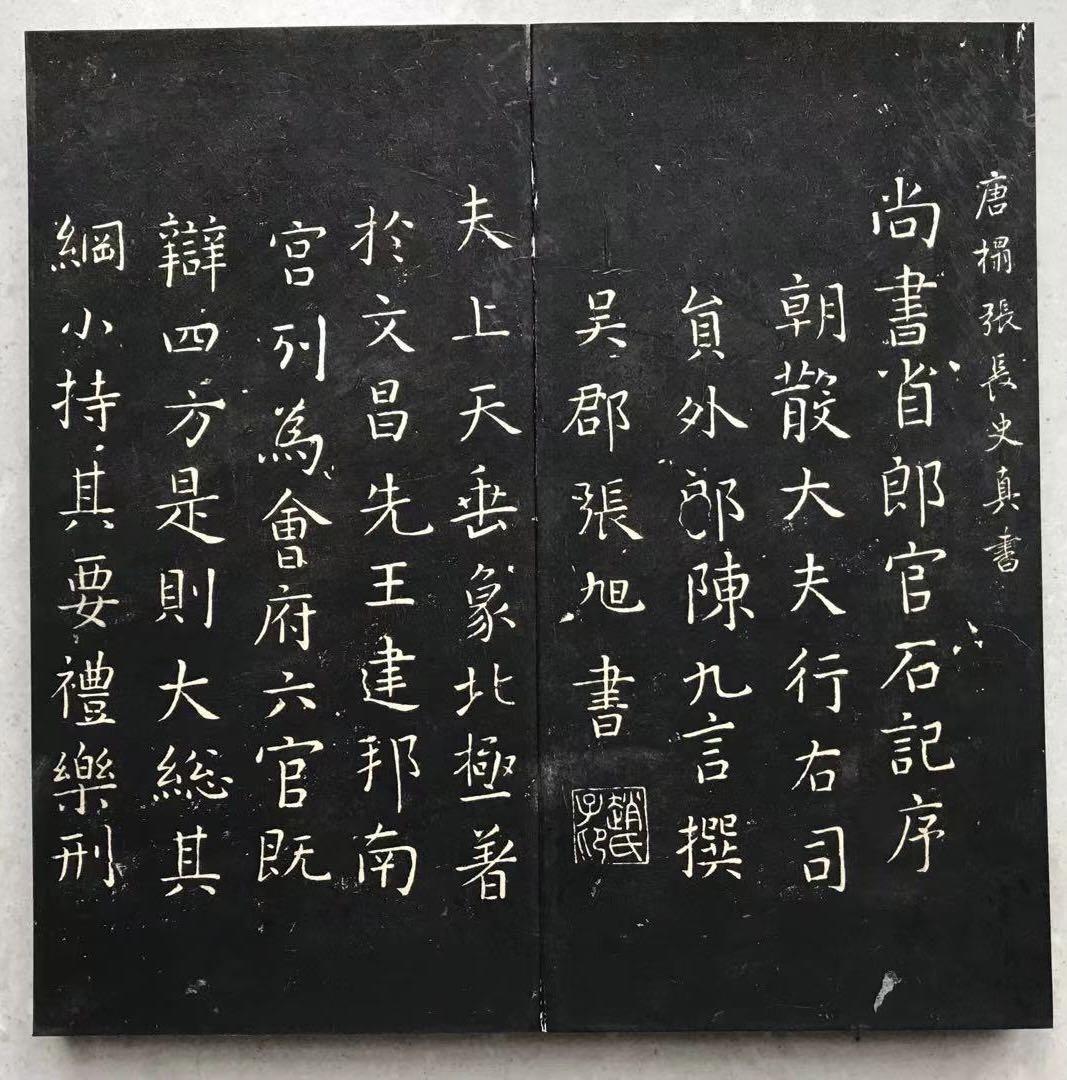 唐榻張長史真書
尚書省郎官石記序
朝散大夫行右司
貟外郎陳九言撰
吴郡張旭書
趙氏子昂
夫上天垂象北極著
於文昌先王建邦南
宫列為會府六官既
辯四方是則大総其
綱小持其要禮樂刑